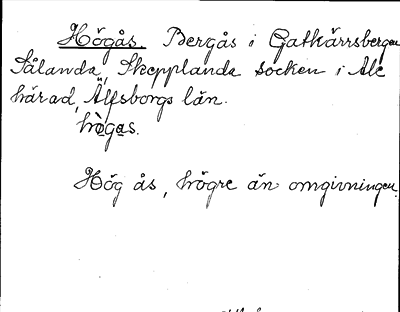 Högås. Bergås i Gatkärrsbergen
Sålanda, Skepplanda socken i Ale
härad, Älfsborgs län.
hö̀gas.
Hög ås, högre än omgivningen.